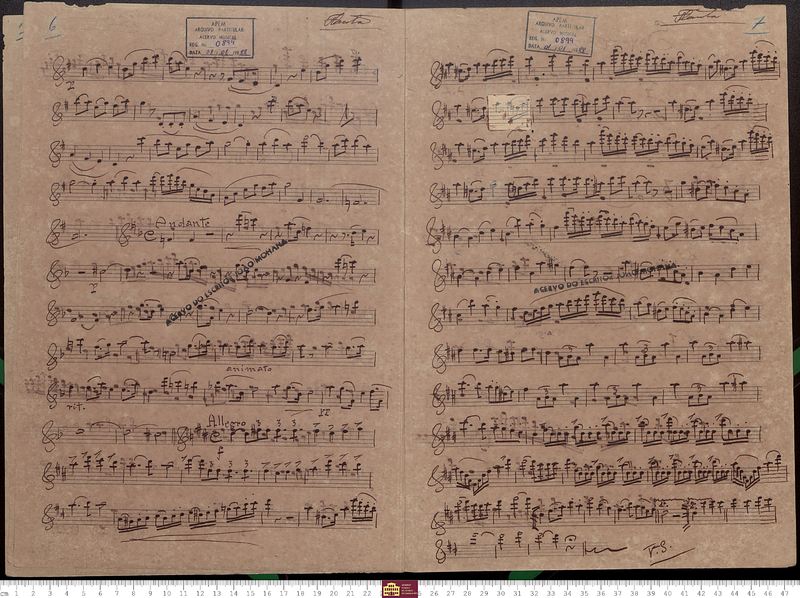 6
Flauta
APEM
ARQUIVO PARTICULAR
ACERVO MUSICAL
REG. Nº 0899
DATA
Andante
P
ACERVO DO ESCRITOR JOÃO MOHANA
animato
rit.
Allegro
f
3 3 3 3
Flauta
7
APEM
ARQUIVO PARTICULAR
ACERVO MUSICAL
REG. Nº 0899
DATA
ACERVO DO ESCRITOR JOÃO MOHANA
cm 1 2 3 4 5 6 7 8 9 10 11 12 13 14 15 16 17 18 19 20 21 22 26 27 28 29 30 31 32 33 34 35 36 37 38 39 40 41 42 43 44 45 46 47